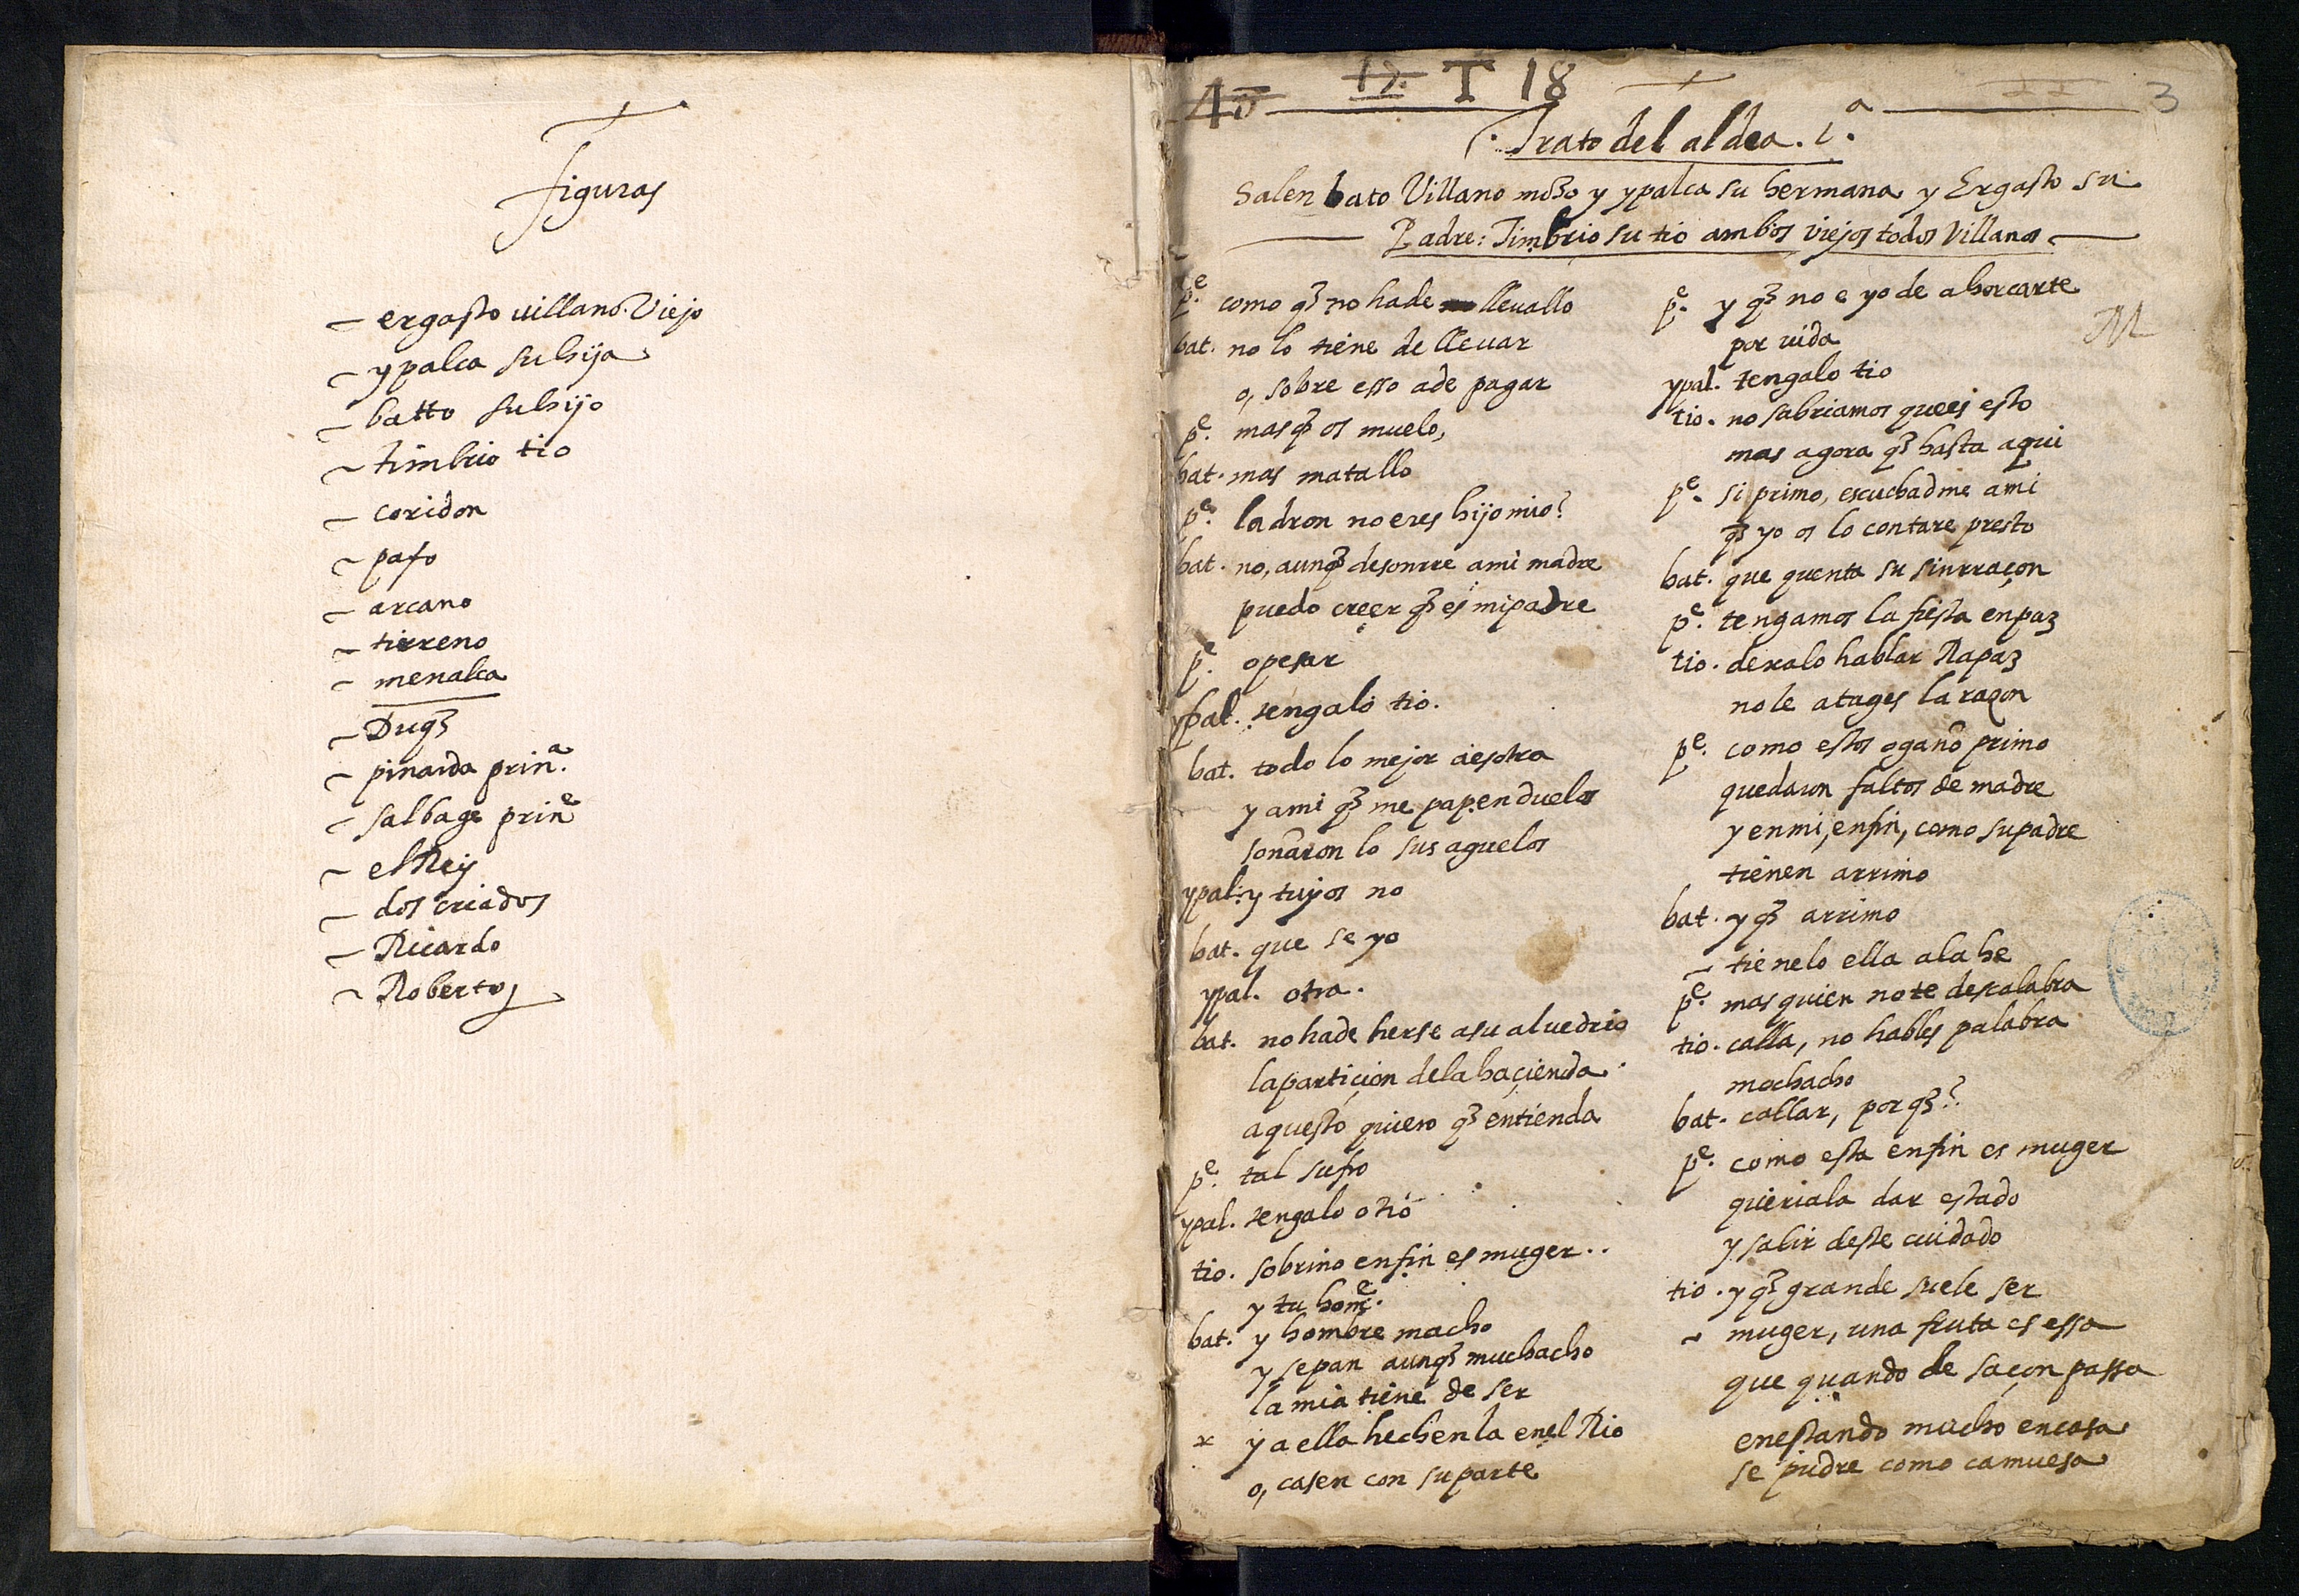 figuras
– ergasto uillano. Viejo
– ypalca su hija
– batto su hijo
– timbrio tio
– coridon
– pafo
– arcano
– tirreno
– menalca
– Duq̃
– pinarda prin.ª
– salbage prinᵉ
– el Rey
– dos criados
– Ricardo
– Roberto
T 18
3
Trato del aldea. 1.ª
Salen bato Villano moço y ypalca su hermana y Ergasto su
Padre: Timbrio su tio ambos viejos todos Villanos
pᵉ. como q̃ no ha de lleuallo
bat. no lo tiene de lleuar
o, sobre esso a de pagar
pᵉ. mas q̃ os muelo,
bat. mas matallo
pᵉ. ladron no eres hijo mio?
bat. no, aunq̃ desonrre a mi madre
puedo creer q̃ es mi padre
pᵉ. o pesar
ypal. tengalo tio.
bat. todo lo mejor a esotra
y a mi q̃ me papen duelos
soñaron lo sus aguelos
ypal. y tuyos no
bat. que se yo
ypal. otra.
bat. no ha de herse a su aluedrio
la partiçion de la haçienda
aquesto quiero q̃ entienda
pᵉ. tal sufro
ypal. tengalo o tio
tio. sobrino enfin es muger..
y tu homᵉ.
bat. y hombre macho
y sepan aunq̃ muchacho
la mia tiene de ser
y a ella hechenla en el Rio
o, casen con su parte
pᵉ. y q̃ no e yo de ahorcarte
por uida
M
ypal. tengalo tio
tio. no sabriamos que es esto
mas agora q̃ hasta aqui
pᵉ. si primo, escuchadme a mi
q̃ yo os lo contare presto
bat. que quenta su sinrraçon
pᵉ. tengamos la fiesta en paz
tio. dexalo hablar Rapaz
no le atages la raçon
pᵉ. como estos ogaño primo
quedaron faltos de madre
y en mi, enfin, como su padre
tienen arrimo
bat. y q̃ arrimo
– tienelo ella a la he
pᵉ. mas quien no te descalabra
tio. calla, no hables palabra
mochacho
bat. callar, por q̃?
pᵉ. como esta enfin es muger
queriala dar estado
y salir deste cuidado
tio. y q̃ grande suele ser
– muger, una fruta es essa
que quando de saçon passa
en estando mucho en casa
se pudre como camuesa